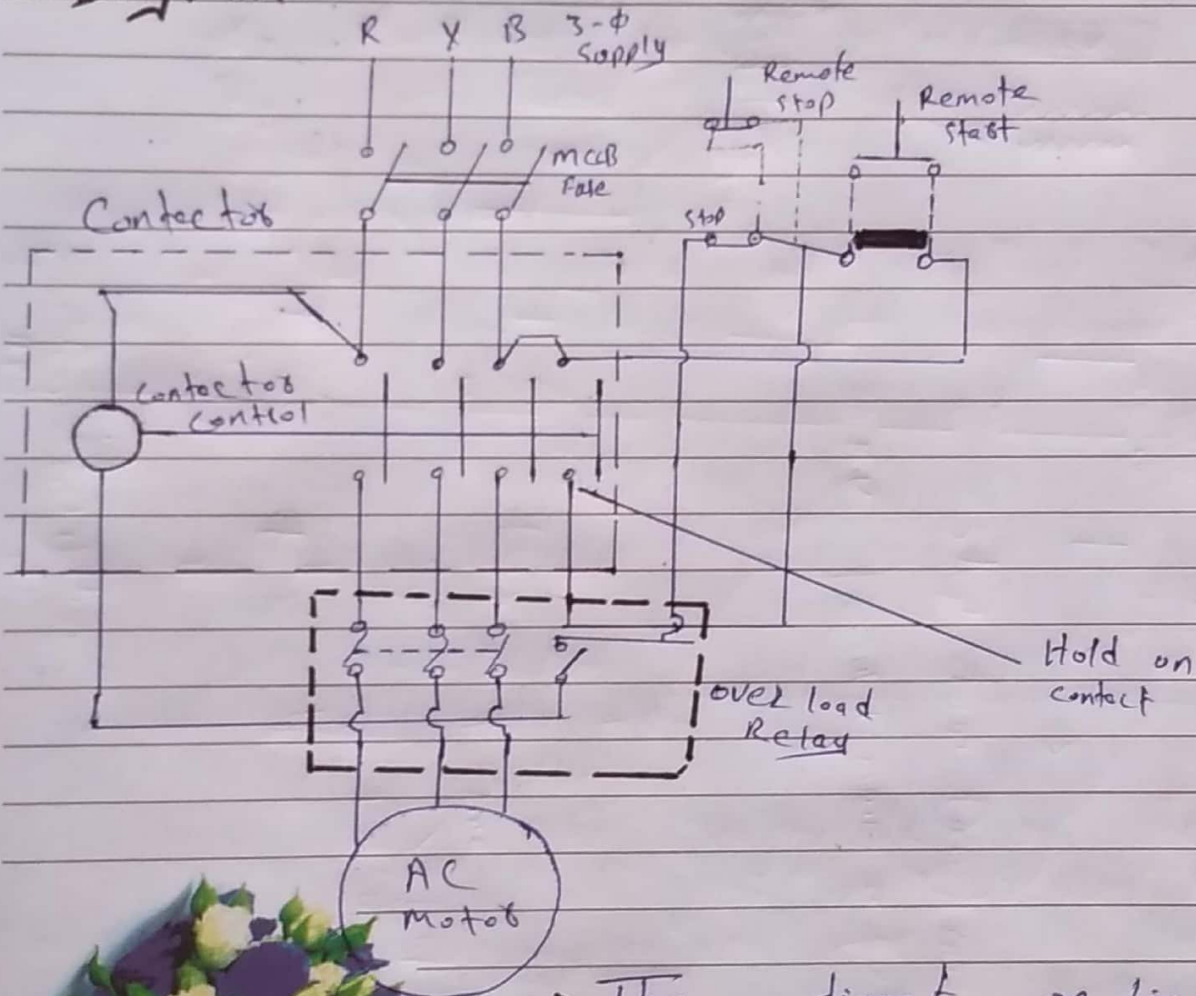 R Y B 3-Φ
Supply
Remote
stop
Remote
start
MCCB
Fuse
Contactor
stop
Contactor
control
Hold on
contact
over load
Relay
AC
Motor